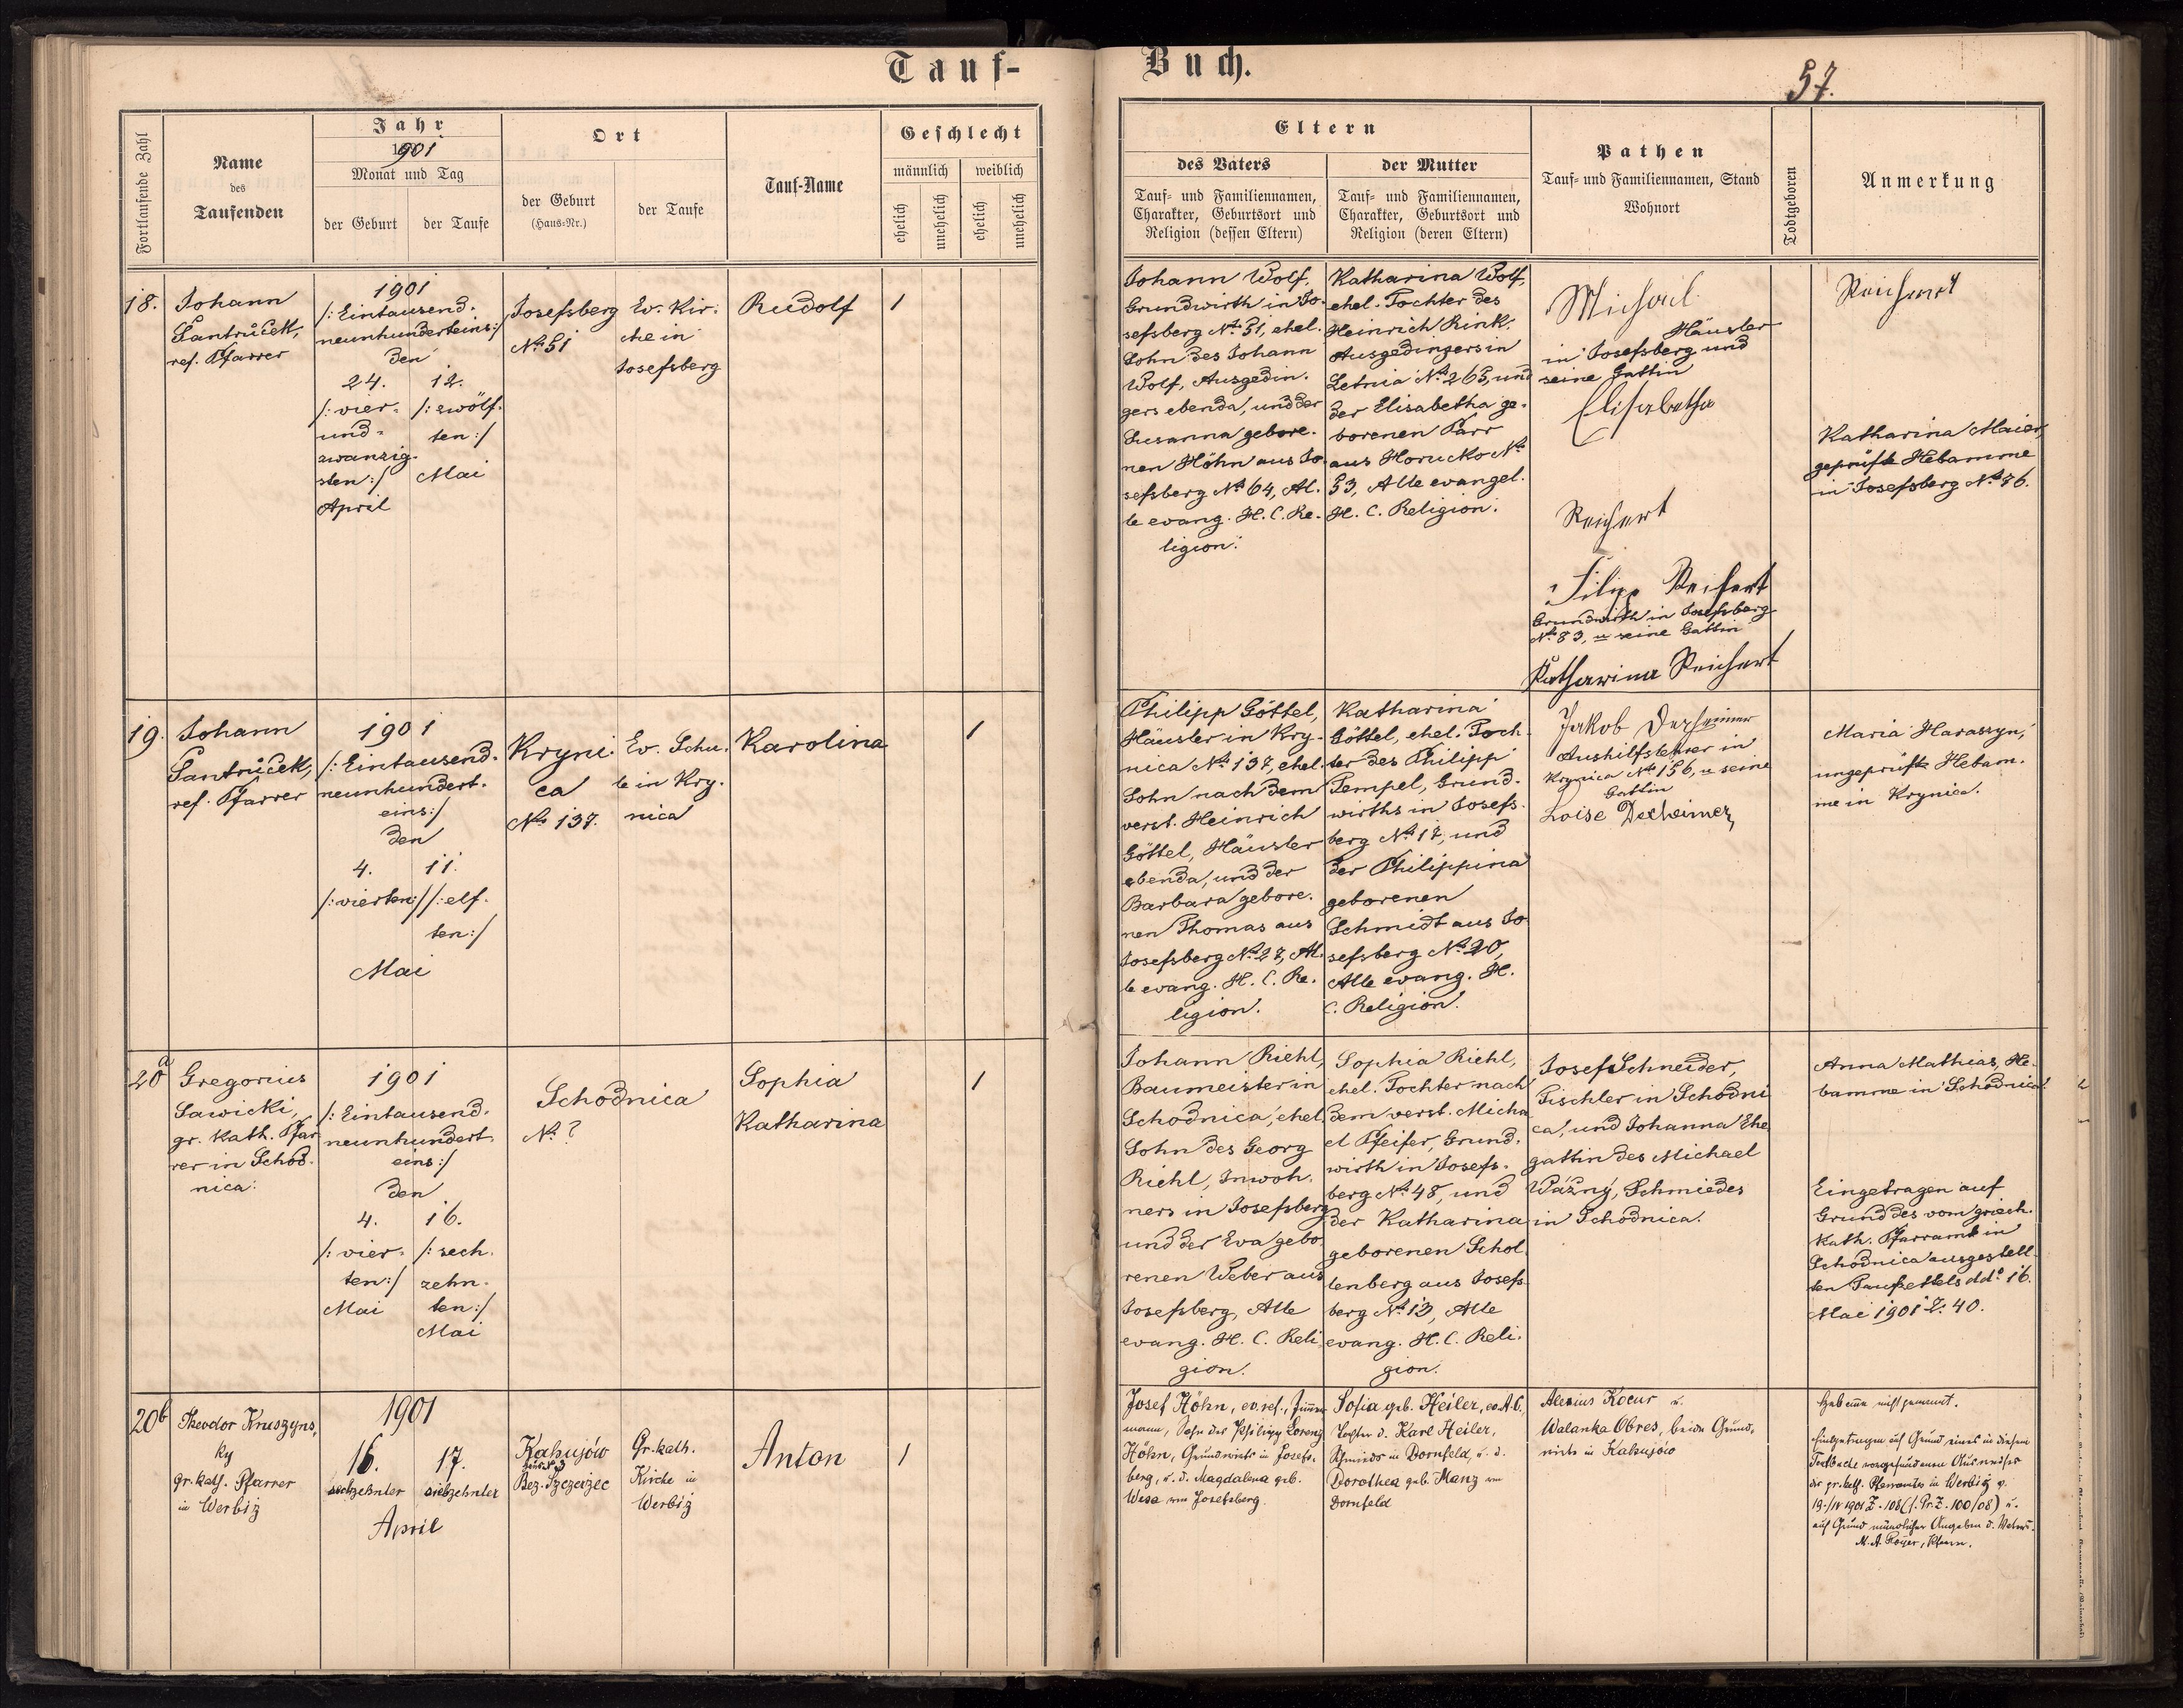 Tauf-
Buch.
57.
Fortlaufende Zahl
Name
des
Taufenden
Jahr
1901
Monat und Tag
der Geburt
der Taufe
Ort
der Geburt
(Haus-Nr.)
der Taufe
Tauf-Name
Geschlecht
männlich
weiblich
ehelich
unehelich
ehelich
unehelich
Eltern
des Vaters
Tauf- und Familiennamen,
Charakter, Geburtsort und
Religion (dessen Eltern)
der Mutter
Tauf- und Familiennamen,
Charakter, Geburtsort und
Religion (deren Eltern)
Pathen
Tauf- und Familiennamen, Stand
Wohnort
Todtgeboren
Anmerkung
18.
Johann
Pantrůček,
ref. Pfarrer
1901
/: Eintausend-
neunhunderteins:/
den
24.
/: vier-
und-
zwanzig-
sten:/
April
12.
/: zwölf-
ten:/
Mai
Josefsberg
No. 51
Ev. Kir-
che in
Josefsberg
Rudolf
1
Johann Wolf,
Grundwirth in Jo-
sefsberg No. 51, ehel.
Sohn des Johann
Wolf, Ausgedin-
gers ebenda, und der
Susanna gebore-
nen Höhn aus Jo-
sefsberg No. 64, Al-
le evang. H. C. Re-
ligion.
Katharina Wolf,
ehel. Tochter des
Heinrich Rink,
Ausgedingers in
Letnia No. 265, und
der Elisabetha ge-
borenen Parr
aus Horucko No.
53, Alle evangel.
H. C. Religion.
Michael
Häusler
in Josefsberg und
seine Gattin
Elisabetha
Reichert
Filipp Reichert
Grundwirth in Josefsberg
No. 83, u seine Gattin
Katharina Reichert
Reichert
Katharina Maier,
geprüfte Hebamme
in Josefsberg No. 76.
19.
Johann
Pantrůček,
ref. Pfarrer
1901
/: Eintausend-
neunhundert-
eins:/
den
4.
/: vierten:/
11.
/: elf-
ten:/
Mai
Kryni-
ca
No. 137.
Ev. Schu-
le in Kry-
nica
Karolina
1
Philipp Göttel,
Häusler in Kry-
nica No. 137, ehel.
Sohn nach dem
verst. Heinrich
Göttel, Häusler
ebenda, und der
Barbara gebore-
nen Thomas aus
Josefsberg No. 27, Al-
le evang. H. C. Re-
ligion.
Katharina
Göttel, ehel. Toch-
ter des Philipp
Tempel, Grund-
wirths in Josefs-
berg No. 17, und
der Philippina
geborenen
Schmidt aus Jo-
sefsberg No. 20,
Alle evang. H.
C. Religion.
Jakob Decheimer
Aushilfslehrer in
Krynica No. 156, u seine
Gattin
Loise Decheimer
Maria Harassyn,
ungeprüfte Hebam-
me in Krynica.
20a
Gregorius
Sawicki,
gr. kath. Pfar-
rer in Schod-
nica.
1901
/: Eintausend-
neunhundert-
eins:/
den
4.
/: vier-
ten:/
Mai
16.
/: sech-
zehn-
ten:/
Mai
Schodnica
No. ?
Sophia
Katharina
1
Johann Riehl,
Baumeister in
Schodnica, ehel.
Sohn des Georg
Riehl, Inwoh-
ners in Josefsberg
und der Eva gebo-
renen Weber aus
Josefsberg, Alle
evang. H. C. Reli-
gion.
Sophia Riehl,
ehel. Tochter nach
dem verst. Micha-
el Pfeifer, Grund-
wirth in Josefs-
berg No. 48, und
der Katharina
geborenen Schol-
lenberg aus Josefs-
berg No. 13, Alle
evang. H. C. Reli-
gion.
Josef Schneider,
Tischler in Schodni-
ca, und Johanna Ehe-
gattin des Michael
Ważný, Schmiedes
in Schodnica.
Anna Mathias, He-
bamme in Schodnica.
Eingetragen auf
Grund des vom griech.
kath. Pfarramt in
Schodnica ausgestell-
ten Taufzettels ddo. 16.
Mai 1901 Z. 40.
20b
Theodor Kruszyns-
ky
gr. kath. Pfarrer
in Werbiz
1901
16.
sechzehnter
17.
siebzehnter
April
Kahujów
Haus No 3
Bez. Szczerzec
Gr. kath.
Kirche in
Werbiz
Anton
1
Josef Höhn, ev. ref., Zimmer-
mann, Sohn des Philipp Lorenz
Höhn, Grundwirts in Josefs-
berg, u. d. Magdalena geb.
Wesa von Josefsberg.
Sofia geb. Heiler, ev. A. C.,
Tochter d. Karl Heiler,
Schmieds in Dornfeld, u. d.
Dorothea geb. Manz von
Dornfeld
Alexius Kocur u.
Walanka Obres, beide Grund-
wirte in Kahujów
Hebamme nicht genannt.
Eingetragen auf Grund eines in diesem
Taufbuche vorgefundenen Ausweises
des gr. kath. Pfarramtes in Werbiz v.
19./IV 1901 Z. 108 (s. Pr. Z. 100/08) u.
auf Grund mündlicher Angaben d. Vaters.